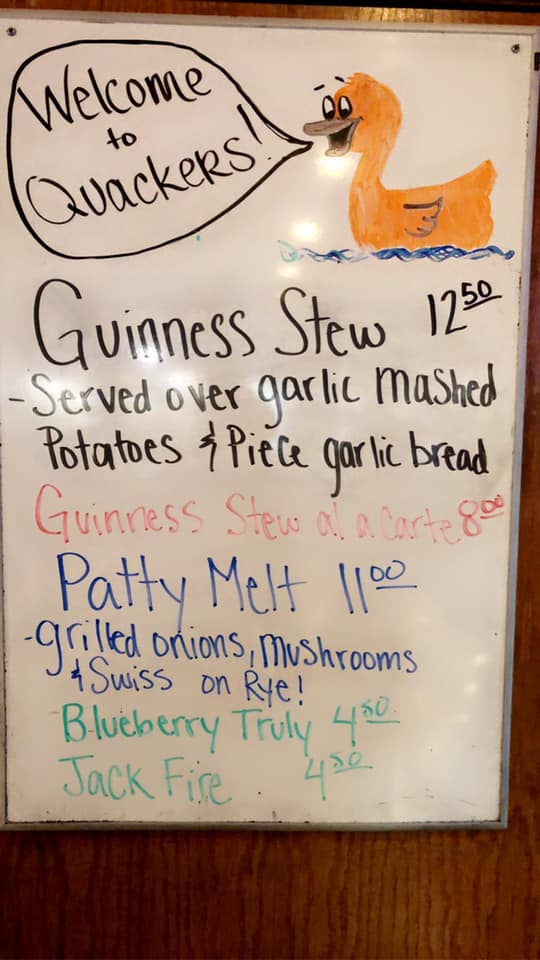 Welcome
to
Quackers!
Guinness Stew 12 50
-Served over garlic mashed
Potatoes & Piece garlic bread
Guinness Stew al a Carte 8 00
Patty Melt 11 00
-grilled onions, mushrooms
& Swiss on Rye!
Blueberry Truly 4 50
Jack Fire 4 50